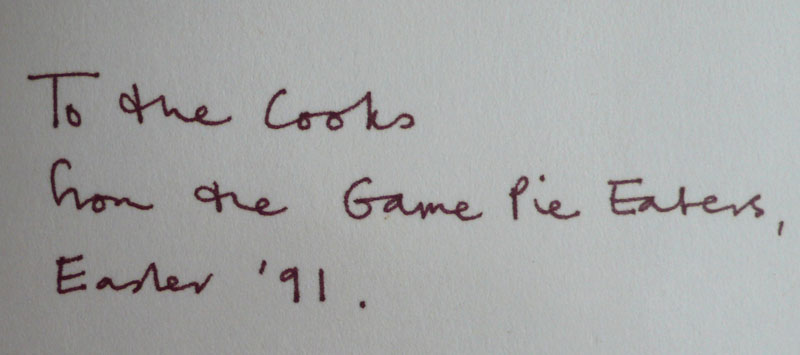 To the Cooks
from the Game Pie Eaters,
Easter '91.